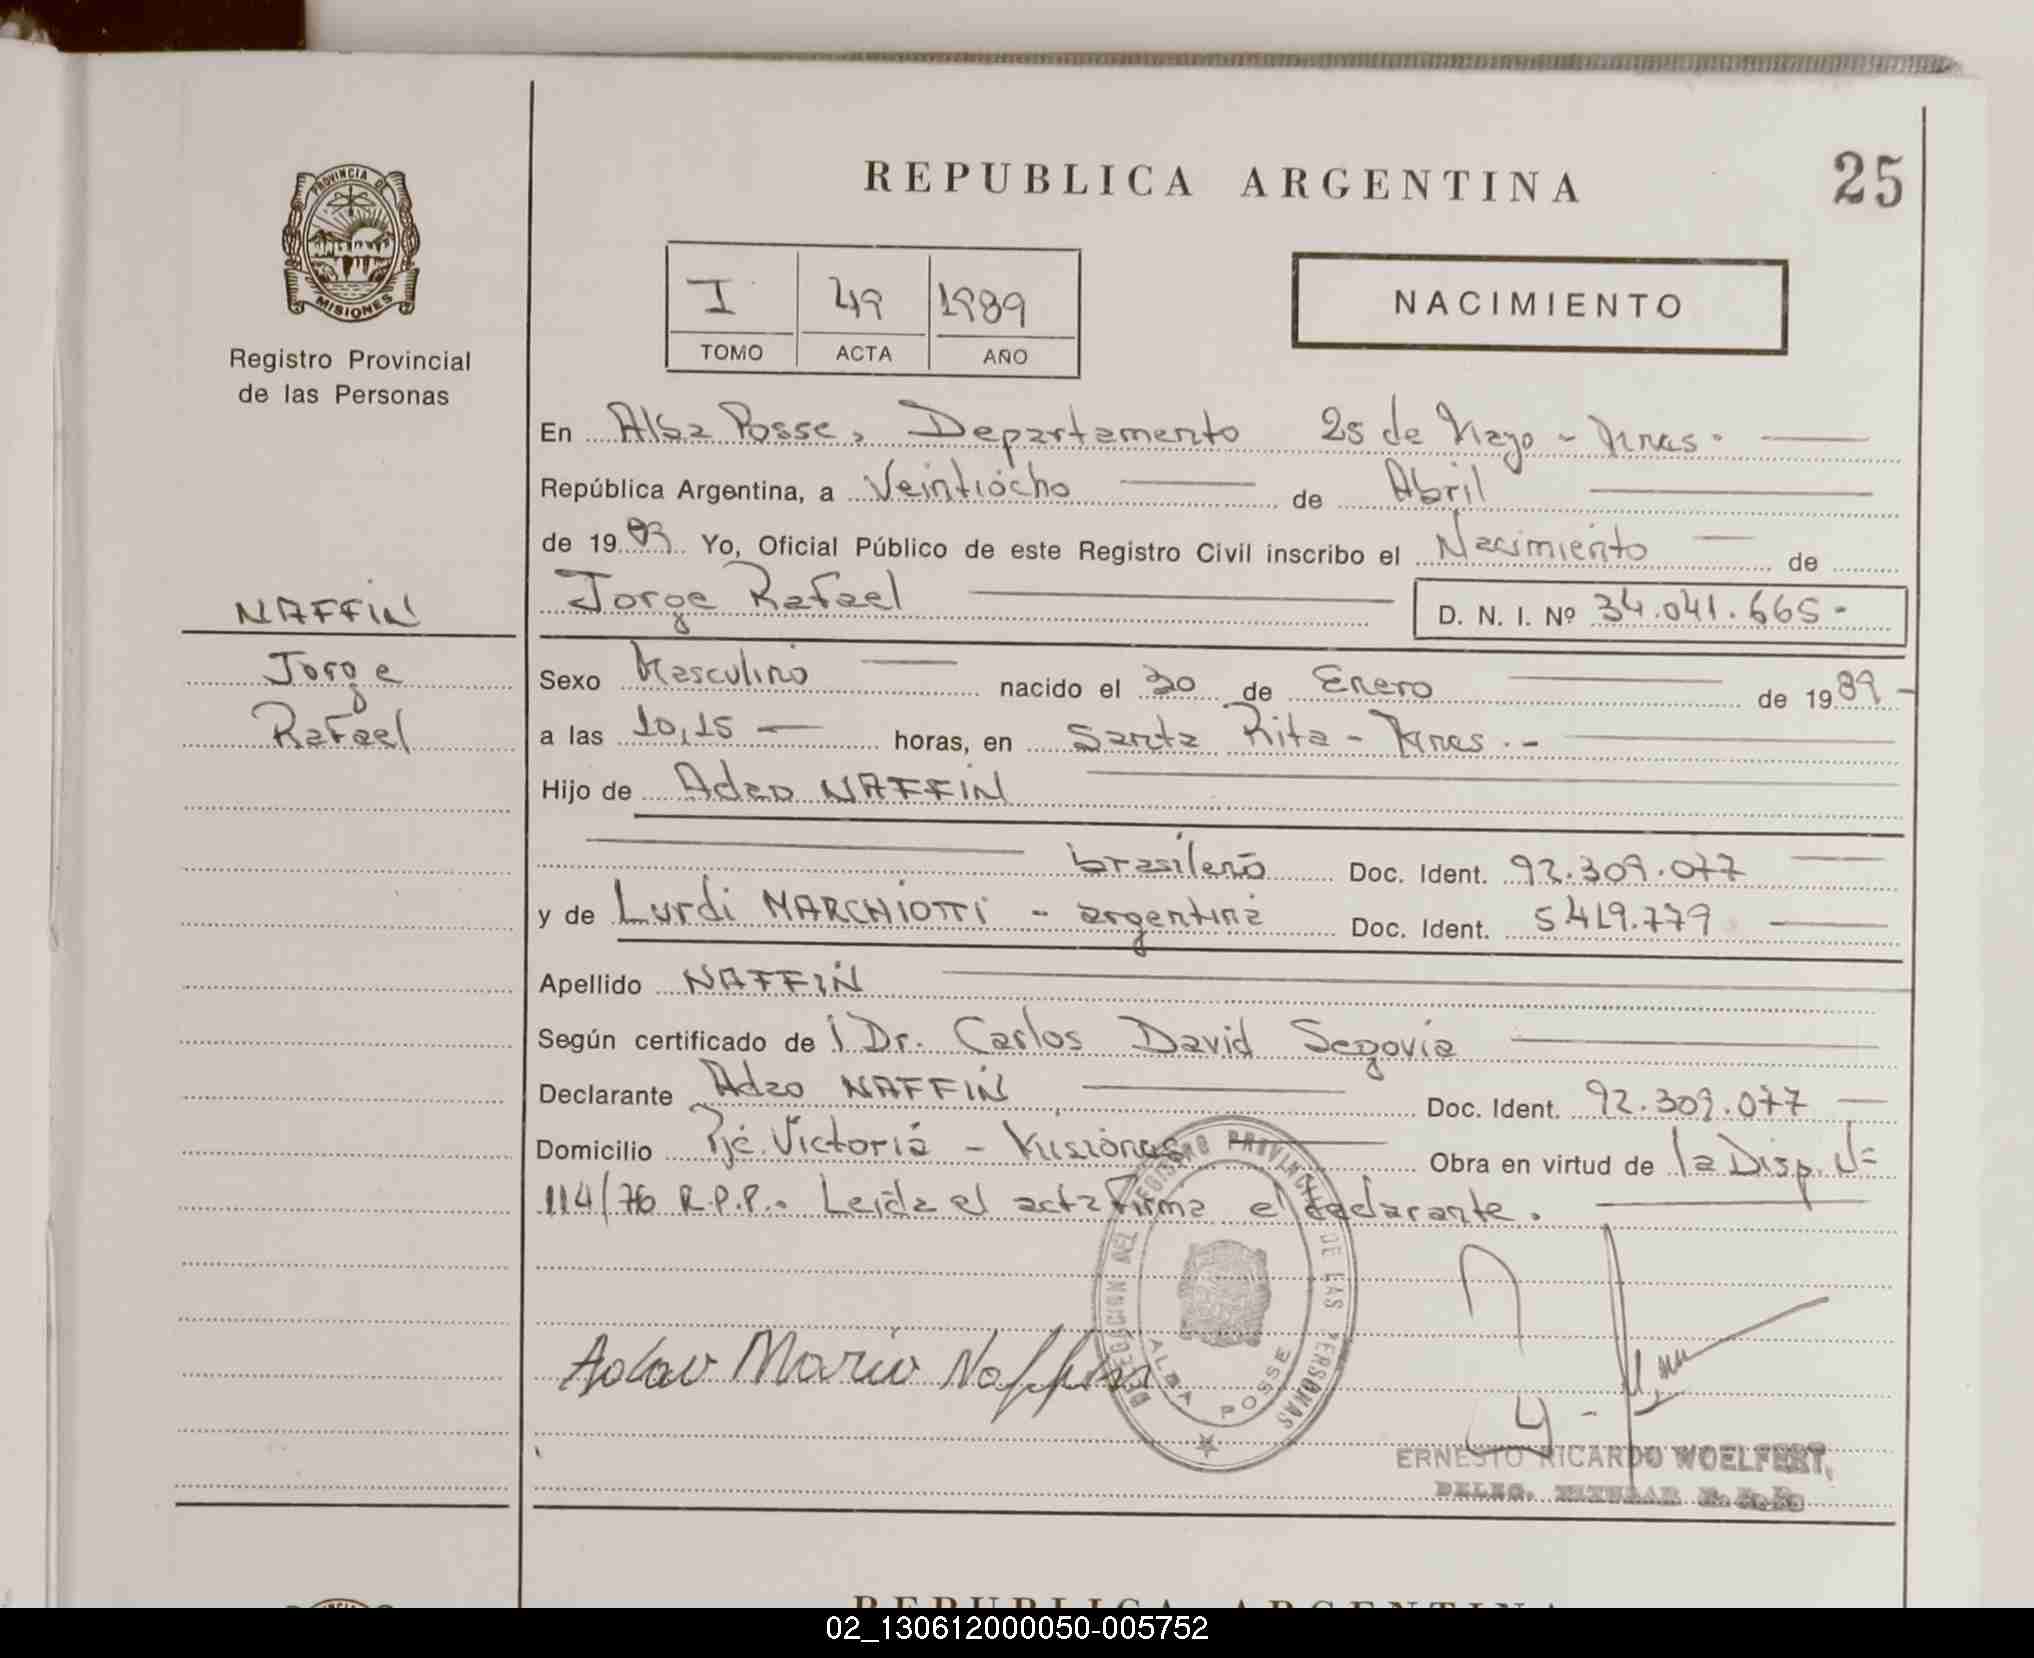 PROVINCIA DE
MISIONES
Registro Provincial
de las Personas
REPUBLICA ARGENTINA
25
I 49 1989
TOMO ACTA AÑO
NACIMIENTO
En Alba Posse, Departamento 25 de Mayo - Mnes.
República Argentina, a Veintiocho de Abril
de 1989 Yo, Oficial Público de este Registro Civil inscribo el Nacimiento de
Jorge Rafael D. N. I. Nº 34.041.665-
NAFFIN
Jorge
Rafael
Sexo Masculino nacido el 30 de Enero de 1989-
a las 10,15 horas, en Santa Rita - Mnes.-
Hijo de NAFFIN
brasileño Doc. Ident. 92.309.077
y de Lurdi MARCHIOTTI - argentina Doc. Ident. 5419.779
Apellido NAFFIN
Según certificado de l Dr. Carlos David Segovia
Declarante NAFFIN Doc. Ident. 92.309.077
Domicilio Pje. Victoria - Misiones Obra en virtud de la Disp.
114/76 R.P.P. Leída el acta firma el declarante.
DIRECCION DEL REGISTRO PROVINCIAL DE LAS PERSONAS
ALBA POSSE
Mario
ERNESTO RICARDO WOELFERT,
DELEG. TITULAR R. P. P.
REPUBLICA ARGENTINA
02_130612000050-005752